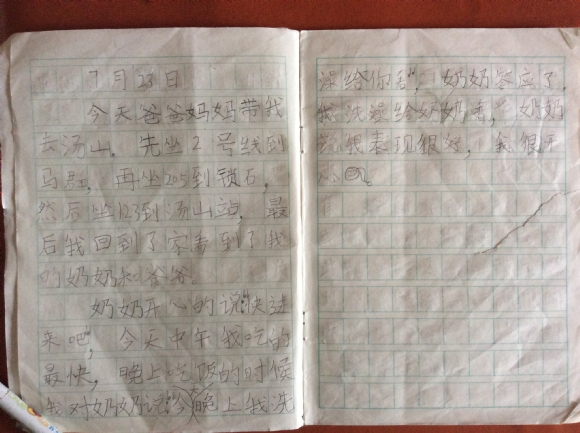 7月23日
今天爸爸妈妈带我
去汤山，先坐2号线到
马群，再坐205到锁石，
然后坐123到汤山站，最
后我回到了家看到了我
的奶奶和爷爷。
奶奶开心的说“快进
来吧”，今天中午我吃的
最快，晚上吃饭的时候
我对奶奶说“今晚上我洗
澡给你看”，奶奶答应了，
我洗澡给奶奶看，奶奶
说我表现很好，我很开
心